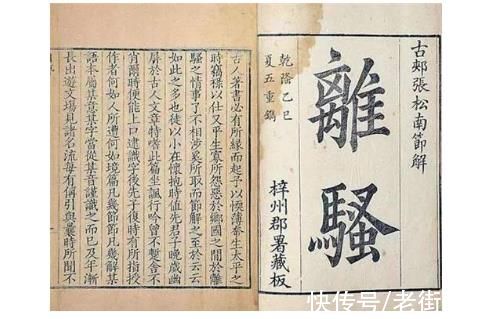 古郟張松南節解
離騷
乾隆乙巳
夏五重鐫
梓州郡署藏板
古人著書必有所緣而起予以愞薄幸生太平之
時竊祿以仕又平生寡所怨惡於鄉國之間於離
騷之情事了不相涉奚所取而節解之至於云云
如此之多也徒以小在懷抱時值先君子晚歲幽
屏於古人文章特嗜此篇坐諷行吟曾不蹔舍不
肖爾時便能上口逮識字後先子復時有所指授
作者何如人所遭何如境篇凡幾節節凡幾解某
語本屬某意某字當從某音謹識之而已及年漸
長出遊文場見諸名流每有稱引與曩時所聞不
快传号/老街